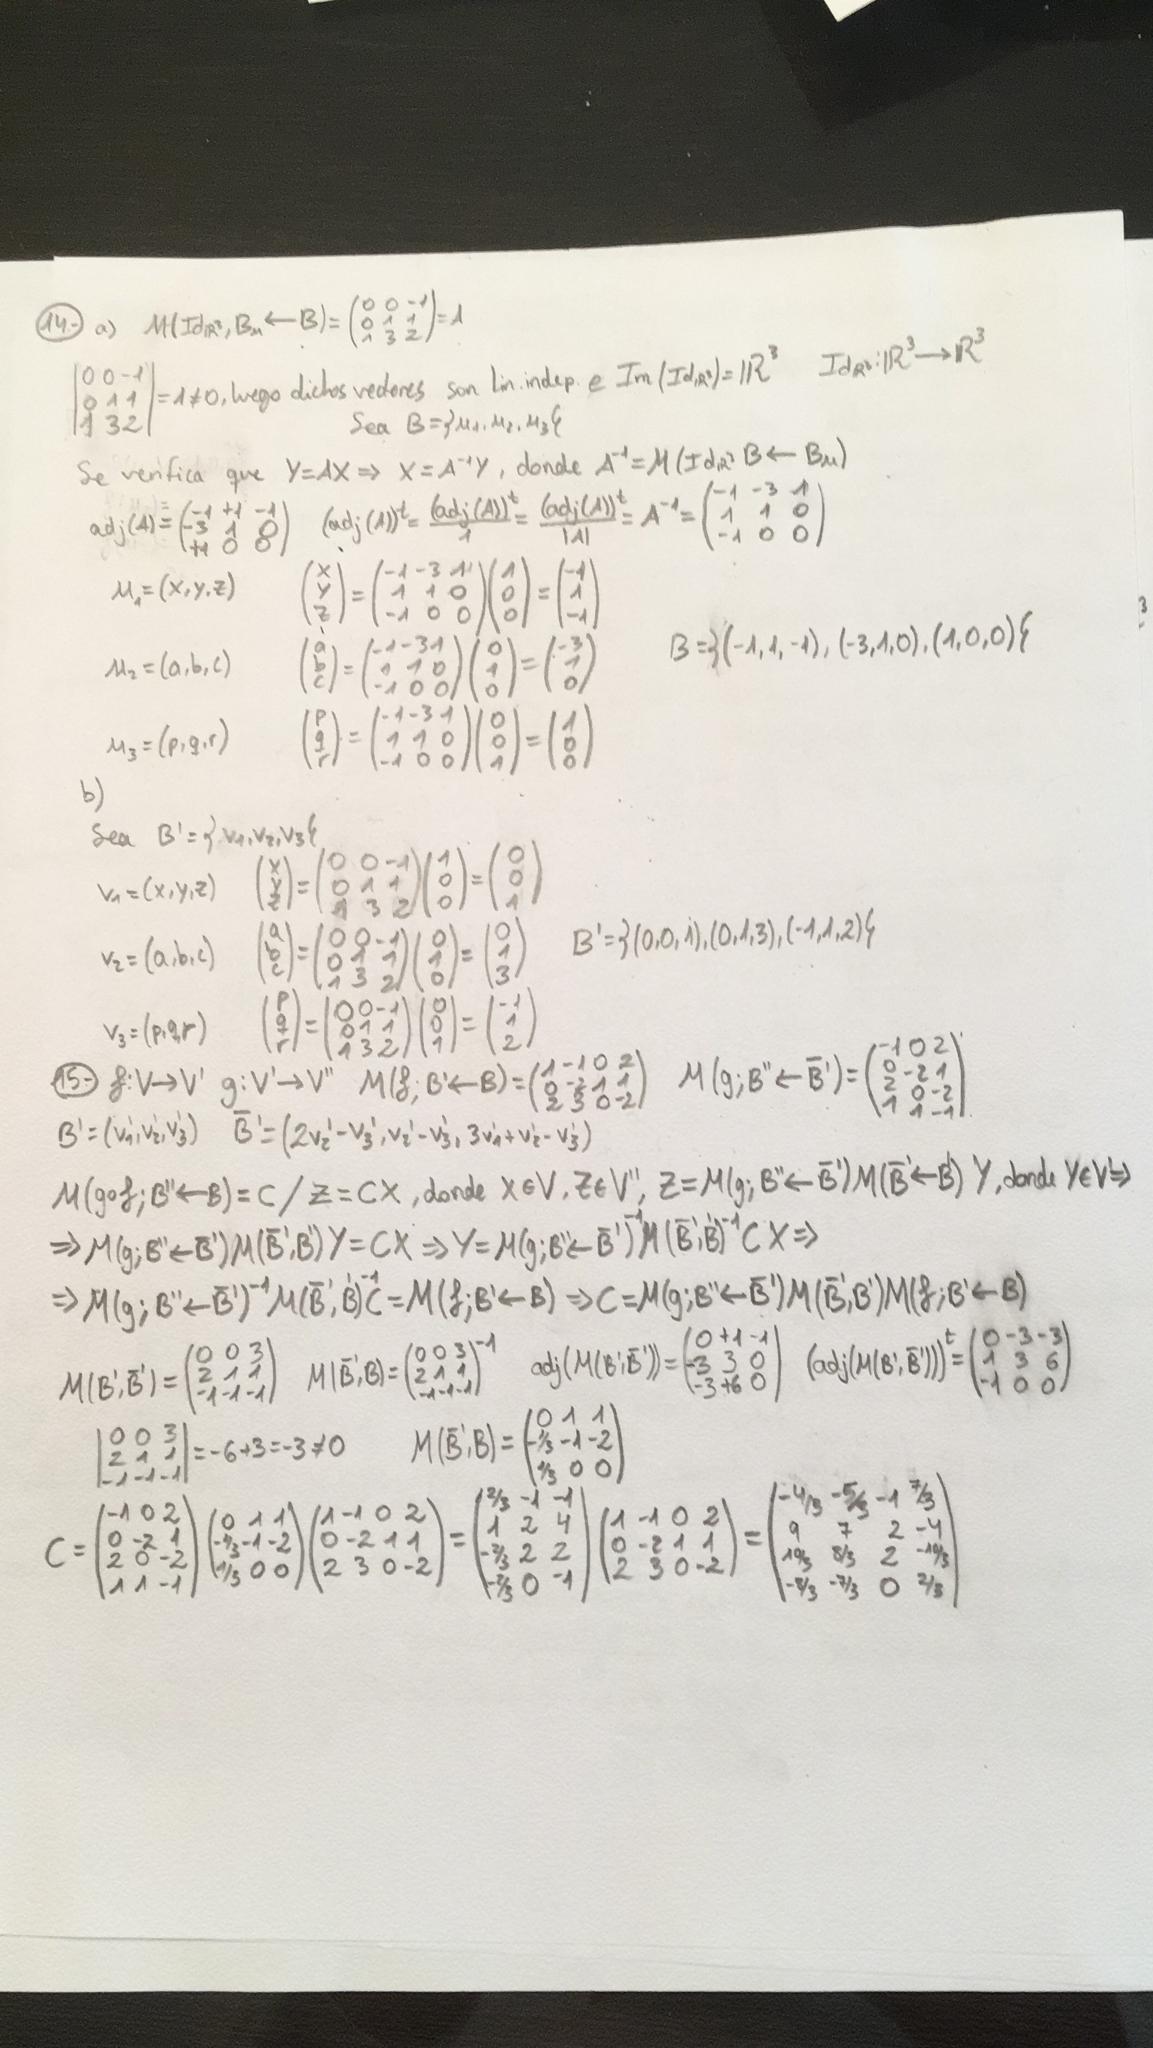 14- a) M(Id_ℝ³, B_u ← B) = (0 0 -1 / 0 1 1 / 1 3 2) = A
|0 0 -1 / 0 1 1 / 1 3 2| = 1 ≠ 0, luego dichos vectores son lin. indep. e Im(Id_ℝ³) = ℝ³ Id_ℝ³: ℝ³ → ℝ³
Sea B = }u₁, u₂, u₃{
Se verifica que Y = AX ⇒ X = A⁻¹Y, donde A⁻¹ = M(Id_ℝ³ B ← B_u)
adj(A) = (-1 +1 -1 / -3 1 0 / +1 0 0) (adj(A))ᵗ = (adj(A))ᵗ/1 = (adj(A))ᵗ/|A| = A⁻¹ = (-1 -3 1 / 1 1 0 / -1 0 0)
u₁ = (x,y,z) (x / y / z) = (-1 -3 1 / 1 1 0 / -1 0 0)(1 / 0 / 0) = (-1 / 1 / -1)
u₂ = (a,b,c) (a / b / c) = (-1 -3 1 / 1 1 0 / -1 0 0)(0 / 1 / 0) = (-3 / 1 / 0) B = }(-1,1,-1), (-3,1,0), (1,0,0){
u₃ = (p,q,r) (p / q / r) = (-1 -3 1 / 1 1 0 / -1 0 0)(0 / 0 / 1) = (1 / 0 / 0)
b)
Sea B' = }v₁, v₂, v₃{
v₁ = (x,y,z) (x / y / z) = (0 0 -1 / 0 1 1 / 1 3 2)(1 / 0 / 0) = (0 / 0 / 1)
v₂ = (a,b,c) (a / b / c) = (0 0 -1 / 0 1 1 / 1 3 2)(0 / 1 / 0) = (0 / 1 / 3) B' = }(0,0,1),(0,1,3),(-1,1,2){
v₃ = (p,q,r) (p / q / r) = (0 0 -1 / 0 1 1 / 1 3 2)(0 / 0 / 1) = (-1 / 1 / 2)
15- f: V → V' g: V' → V'' M(f; B' ← B) = (1 -1 0 2 / 0 -2 1 1 / 2 3 0 -2) M(g; B'' ← B̄') = (-1 0 2 / 0 -2 1 / 2 0 -2 / 1 1 -1)
B' = (v₁', v₂', v₃') B̄' = (2v₂' - v₃', v₂' - v₃', 3v₁' + v₂' - v₃')
M(g∘f; B'' ← B) = C / Z = CX, donde X ∈ V, Z ∈ V'', Z = M(g; B'' ← B̄') M(B̄' ← B') Y, donde Y ∈ V' ⇒
⇒ M(g; B'' ← B̄') M(B̄', B') Y = CX ⇒ Y = M(g; B'' ← B̄')⁻¹ M(B̄', B')⁻¹ C X ⇒
⇒ M(g; B'' ← B̄')⁻¹ M(B̄', B')⁻¹ C = M(f; B' ← B) ⇒ C = M(g; B'' ← B̄') M(B̄', B') M(f; B' ← B)
M(B', B̄') = (0 0 3 / 2 1 1 / -1 -1 -1) M(B̄', B) = (0 0 3 / 2 1 1 / -1 -1 -1)⁻¹ adj(M(B', B̄')) = (0 +1 -1 / -3 3 0 / -3 +6 0) (adj(M(B', B̄')))ᵗ = (0 -3 -3 / 1 3 6 / -1 0 0)
|0 0 3 / 2 1 1 / -1 -1 -1| = -6 + 3 = -3 ≠ 0 M(B̄', B) = (0 1 1 / -1/3 -1 -2 / 1/3 0 0)
C = (-1 0 2 / 0 -2 1 / 2 0 -2 / 1 1 -1)(0 1 1 / -1/3 -1 -2 / 1/3 0 0)(1 -1 0 2 / 0 -2 1 1 / 2 3 0 -2) = (2/3 -1 -1 / 1 2 4 / -2/3 2 2 / -2/3 0 -1)(1 -1 0 2 / 0 -2 1 1 / 2 3 0 -2) = (-4/3 -5/3 -1 7/3 / 9 7 2 -4 / 10/3 8/3 2 -10/3 / -8/3 -7/3 0 2/3)
3